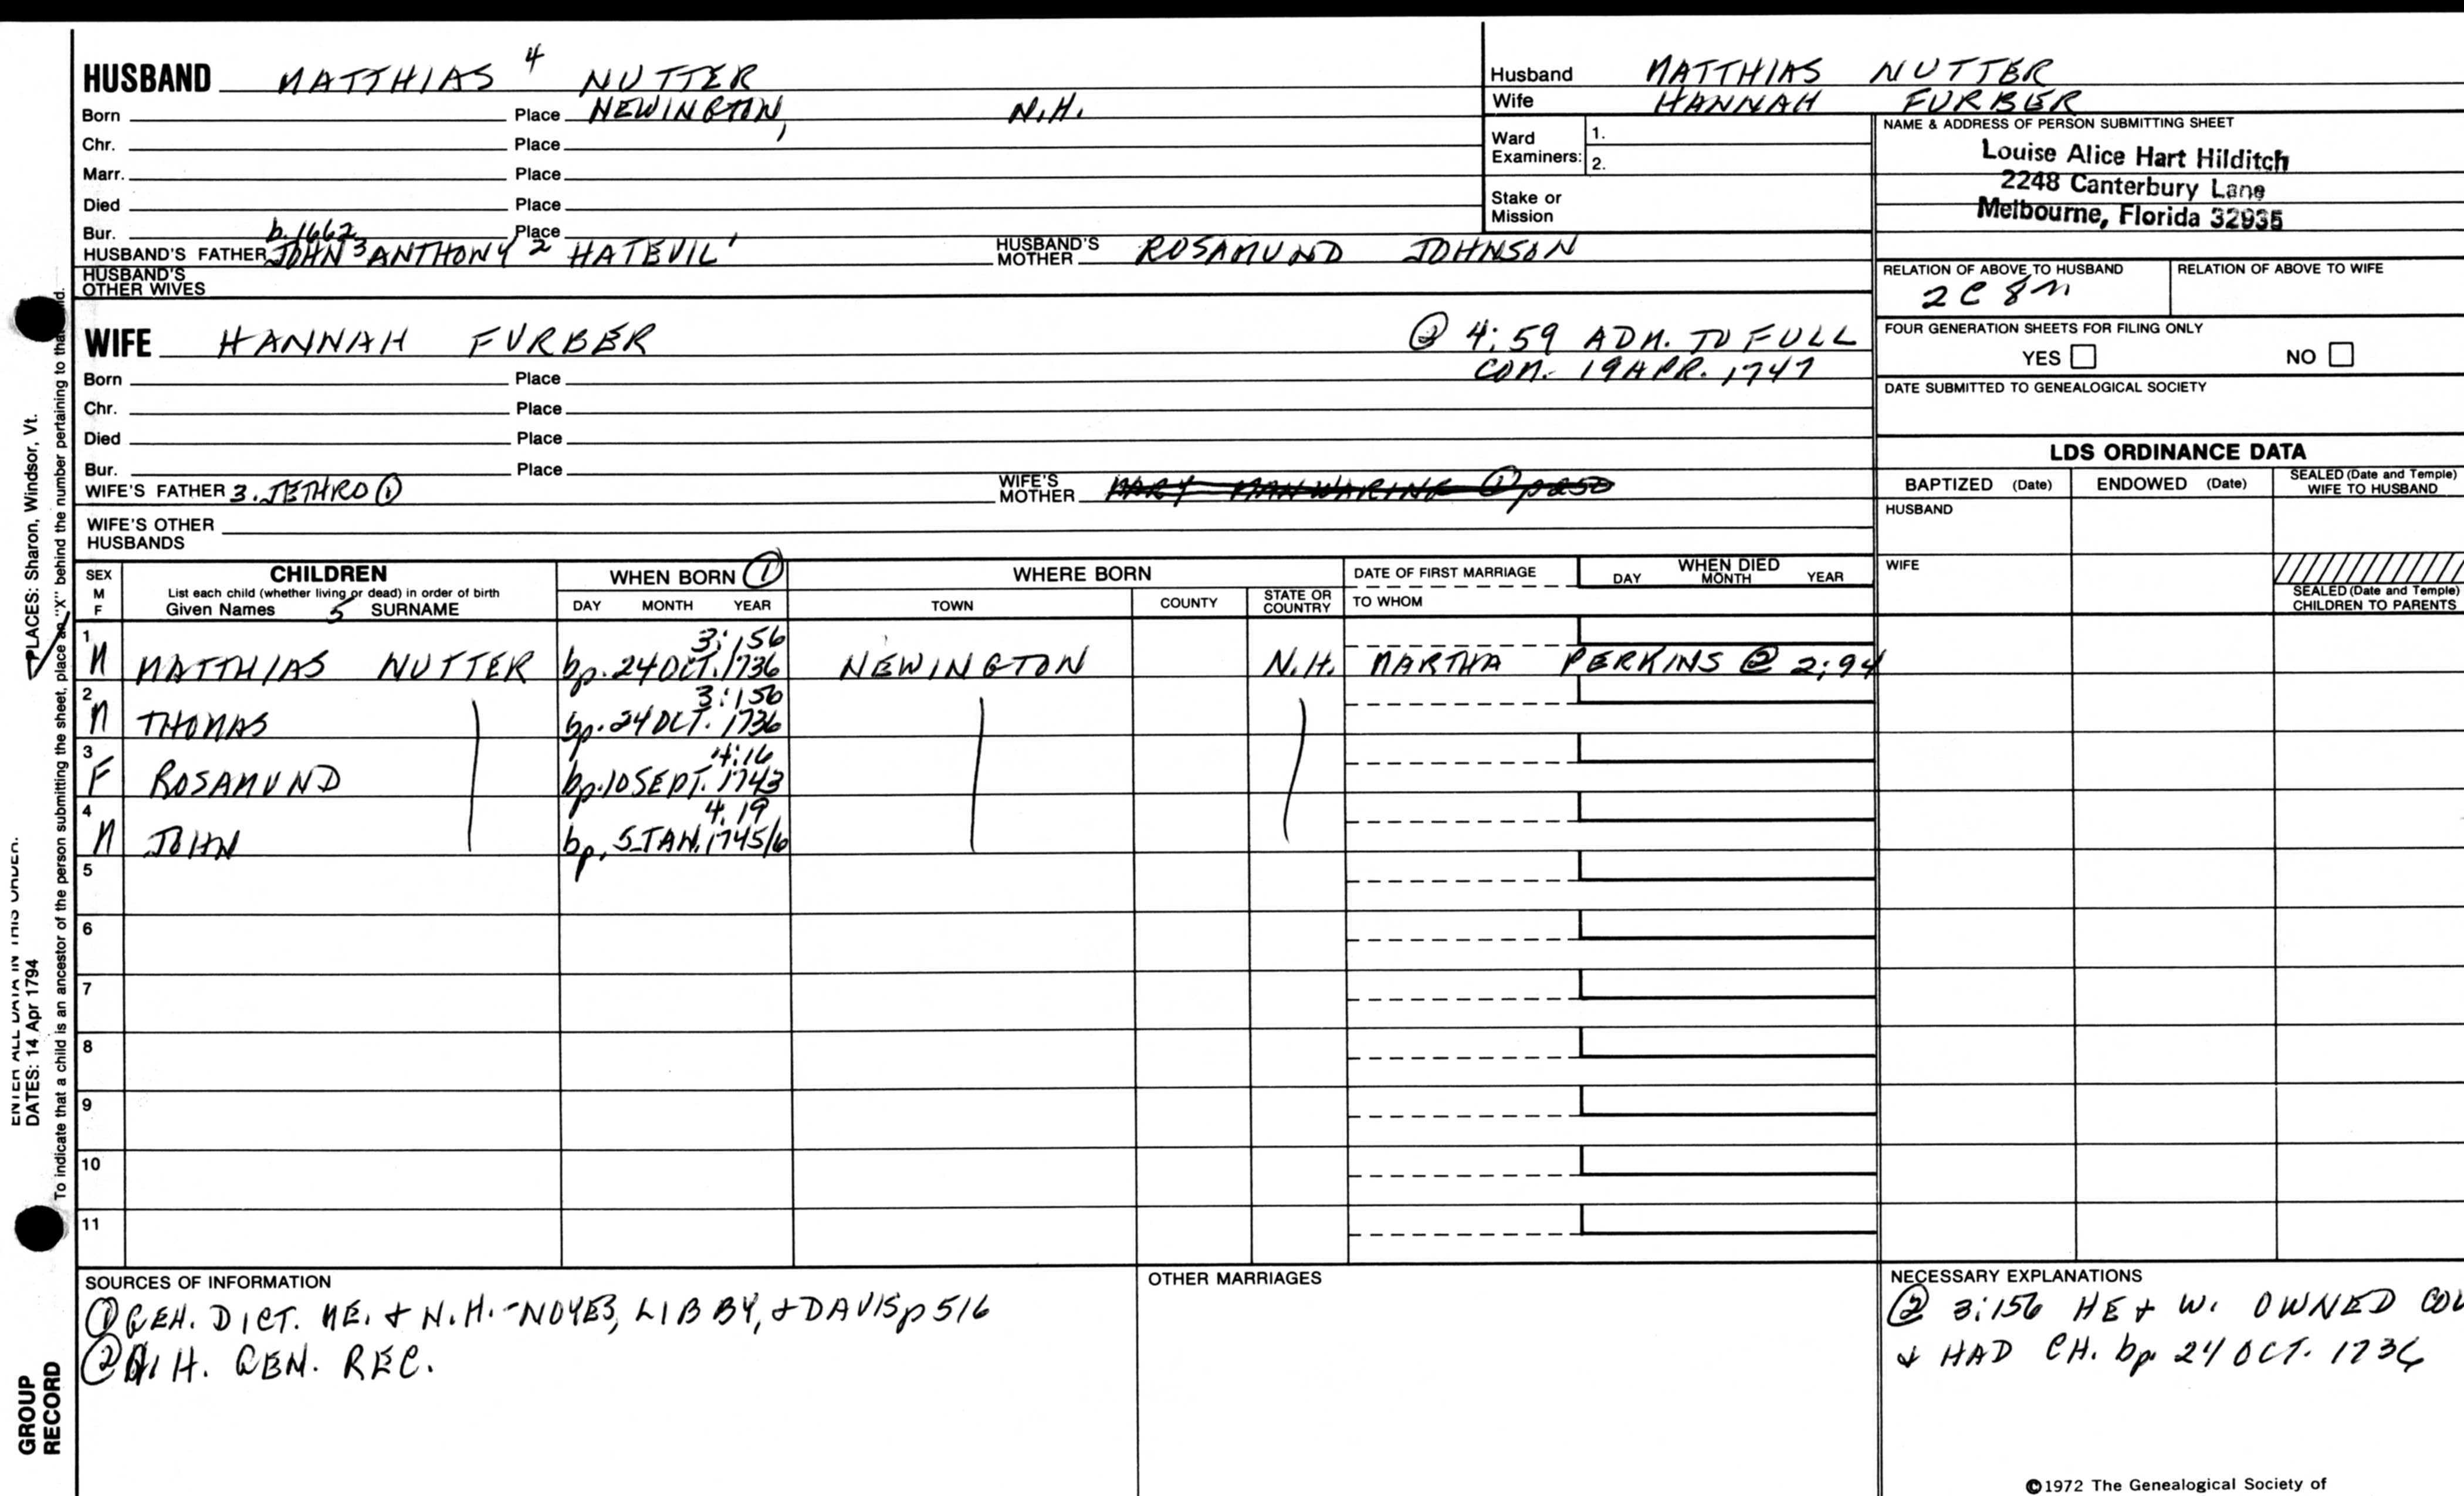 HUSBAND MATTHIAS 4 NUTTER
Born Place NEWINGTON, N.H.
Chr. Place
Marr. Place
Died Place
Bur. b. 1662 Place
HUSBAND'S FATHER JOHN 3 ANTHONY 2 HATEVIL 1 HUSBAND'S MOTHER ROSAMUND JOHNSON
HUSBAND'S OTHER WIVES
Husband MATTHIAS NUTTER
Wife HANNAH FURBER
Ward Examiners: 1.
2.
Stake or Mission
NAME & ADDRESS OF PERSON SUBMITTING SHEET
Louise Alice Hart Hilditch
2248 Canterbury Lane
Melbourne, Florida 32935
RELATION OF ABOVE TO HUSBAND RELATION OF ABOVE TO WIFE
2 C 8 M
FOUR GENERATION SHEETS FOR FILING ONLY
YES NO
DATE SUBMITTED TO GENEALOGICAL SOCIETY
WIFE HANNAH FURBER ② 4:59 ADM. TO FULL
COM. 19 APR. 1747
Born Place
Chr. Place
Died Place
Bur. Place
WIFE'S FATHER 3. JETHRO ① WIFE'S MOTHER MARY MANWARING ① p250
WIFE'S OTHER HUSBANDS
LDS ORDINANCE DATA
BAPTIZED (Date) ENDOWED (Date) SEALED (Date and Temple) WIFE TO HUSBAND
HUSBAND
WIFE
SEALED (Date and Temple) CHILDREN TO PARENTS
SEX M F
CHILDREN
List each child (whether living or dead) in order of birth
Given Names 5 SURNAME
WHEN BORN ①
DAY MONTH YEAR
WHERE BORN
TOWN COUNTY STATE OR COUNTRY
DATE OF FIRST MARRIAGE
TO WHOM
WHEN DIED
DAY MONTH YEAR
1 3:156
M MATTHIAS NUTTER bp. 24 OCT. 1736 NEWINGTON N.H. MARTHA PERKINS ② 2:94
2 3:156
M THOMAS bp. 24 OCT. 1736
3 4:16
F ROSAMUND bp. 10 SEPT. 1743
4 4.19
M JOHN bp. 5 JAN. 1745/6
5
6
7
8
9
10
11
SOURCES OF INFORMATION
① GEN. DICT. ME. + N.H. - NOYES, LIBBY, + DAVIS p 516
② N.H. GEN. REC.
OTHER MARRIAGES
NECESSARY EXPLANATIONS
② 3:156 HE + W. OWNED COV
+ HAD CH. bp 24 OCT. 1736
©1972 The Genealogical Society of
PLACES: Sharon, Windsor, Vt.
ENTER ALL DATA IN THIS ORDER:
DATES: 14 Apr 1794
To indicate that a child is an ancestor of the person submitting the sheet, place an "X" behind the number pertaining to that
GROUP
RECORD